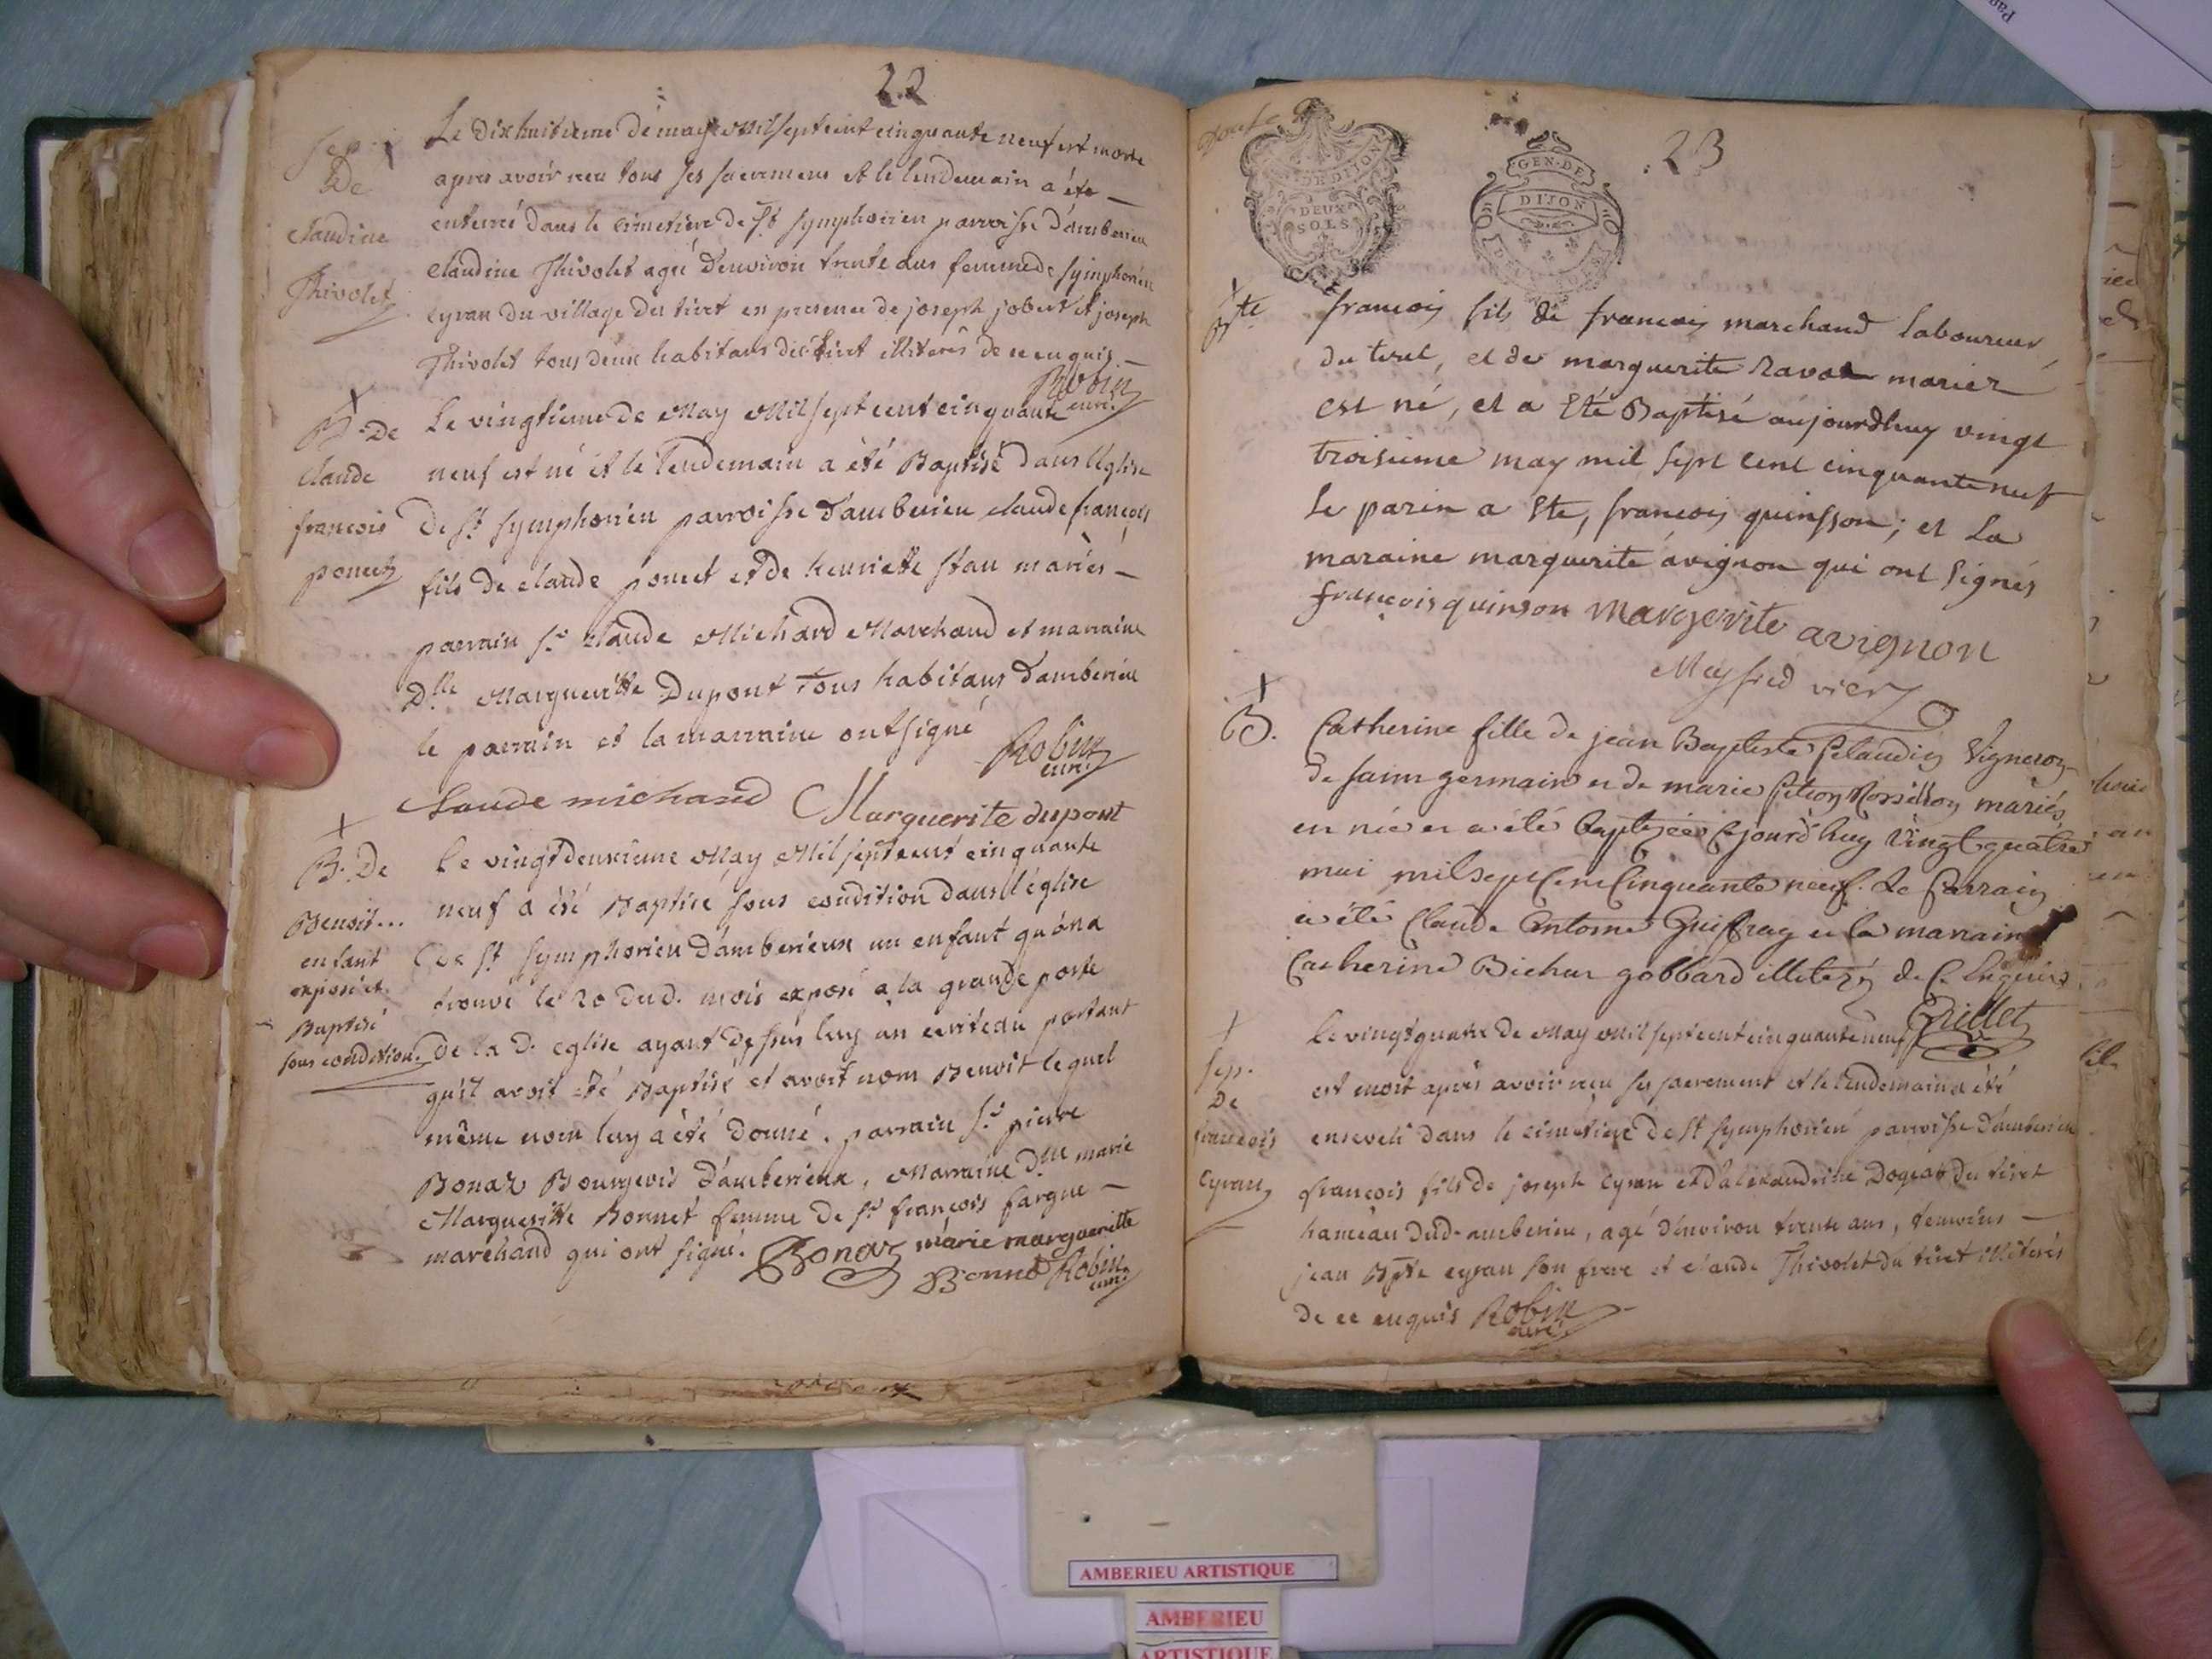 22
Sep.
De
Claudine
Thivolet
Le dixhuitieme de may mil sept cent cinquante neuf est morte
apres avoir reçu tous ses sacremens et le lendemain a été
enterré dans le cimetière de St symphorien parroisse d'amberieu
claudine Thivolet agéé d'environ trente ans femme de symphorien
cyvan du village du tiret en presence de joseph jobert et joseph
Thivolet tous deux habitans du tiret illiterés de ce enquis
Robin
curé
B. De
claude
francois
poncet
Le vingtieme de May Mil sept cent cinquante
neuf est né et le lendemain a été Baptisé dans l'eglise
de St symphorien parroisse d'amberieu claude francois
fils de claude poncet et de henriette stau mariés
parrain sr. claude Michard Marchand et marraine
Dlle Margueritte Dupont tous habitans d'amberieu
le parrain et la marraine ont signé
Robin
curé
Claude michaud Marguerite dupont
B. De
Benoit...
enfant
exposé et
Baptisé
sous condition.
Le vingtdeuxieme May Mil sept cent cinquante
neuf a été Baptisé sous condition dans l'église
de St symphorien d'amberieux un enfant qu'on a
trouvé le 20 dud. mois exposé a la grande porte
de la d. eglise ayant dessus luy un ecriteau portant
qu'il avoit été Baptisé et avoit nom Benoit lequel
même nom luy a été donné. parrain sr. pierre
Bonaz Bourgeois d'amberieux, Marraine Dlle marie
Margueritte Bonnet femme de sr. françois fargue
marchand qui ont signé. Bonaz marie margueritte
Bonnet Robin
curé
23
GEN. DE DIJON
DEUX
SOLS
GEN. DE
DIJON
Bte
francois fils de francois marchand laboureur
du tiret, et de marguerite Ravat mariez
est né, et a Eté Baptisé aujourdhuy vingt
troisieme may mil sept cent cinquante neuf
le parin a Ete, francois quinsson; et la
maraine marguerite avignon qui ont signés
françois quinson margerite avignon
Meyfred vic
B.
Catherine fille de jean Baptiste Pelaudin Vigneron
de saint germain et de marie mariés
est née et a été baptizée cejourd'huy vingt quatre
mai mil sept cent cinquante neuf. Le parrain
a été Claude Antoine Guiffray et la marraine
Catherine Bichat gobbard illiterés de ce enquis
Grillet
Sep.
De
francois
Cyvan
Le vingtquatre de May Mil sept cent cinquante neuf
est mort après avoir reçu ses sacrement et le lendemain a été
enseveli dans le cimetière de St symphorien parroisse d'amberieu
françois fils de joseph cyvan et d'alexandrine Dogeat du tiret
hameau dud. amberieu, agé d'environ trente ans, temoins
jean Bpte cyvan son frere et claude Thivolet du tiret illiterés
de ce enquis Robin
curé
AMBERIEU ARTISTIQUE
AMBERIEU
ARTISTIQUE